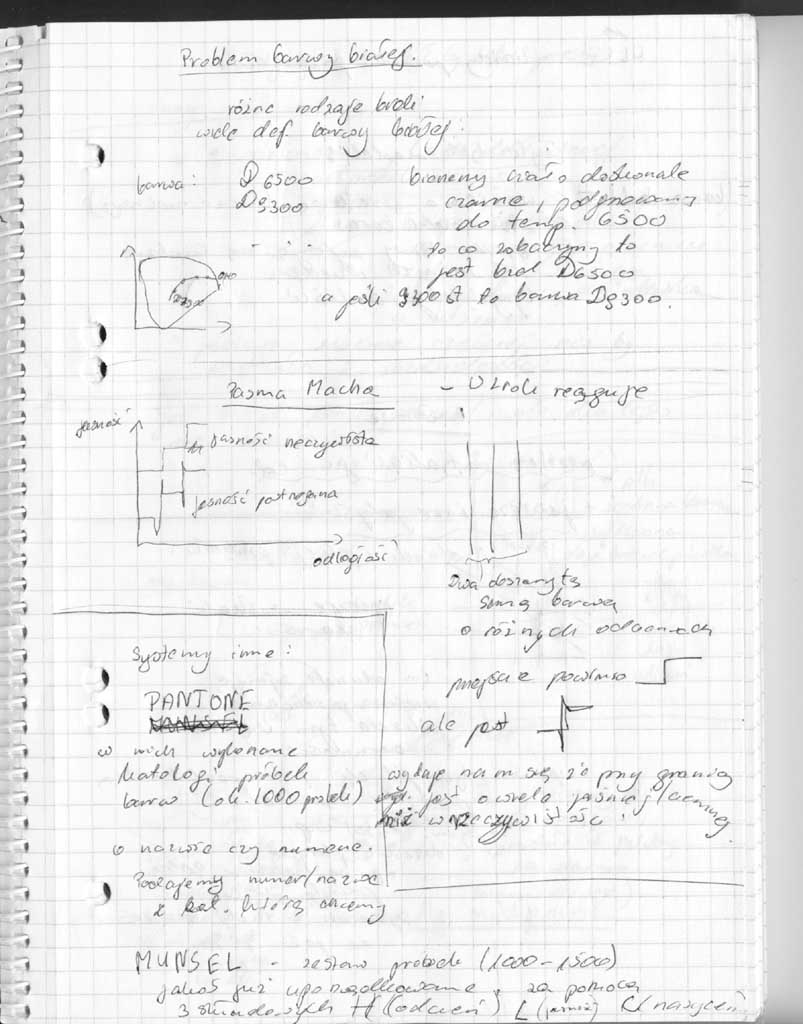 Problem barwy białej.
różne rodzaje bieli
wiele def. barwy białej:
barwa: D 6500
D 9300
. . .
bierzemy ciało doskonale
czarne, podgrzewamy
do temp. 6500
to co zobaczymy to
jest biel D6500
a jeśli 9300 st to barwa D9300.
Pasma Macha
jasność
jasność rzeczywista
jasność postrzegana
odległość
- wzrok reaguje
Dwa obszary tą
samą barwą
o różnych odcieniach
przejście powinno
ale jest
wydaje nam się że przy granicy
jest o wiele jaśniej/ciemniej
niż w rzeczywistości!
Systemy inne:
PANTONE
w nich wykonane
katalogi próbek
barw (ok. 1000 próbek)
o nazwie czy numerze.
Podajemy numer/nazwę
z kat. którą chcemy
MUNSEL - zestaw próbek (1000-1500)
jakoś już uporządkowane, za pomocą
3 składowych H (odcień) L (jasność) C (nasycenie